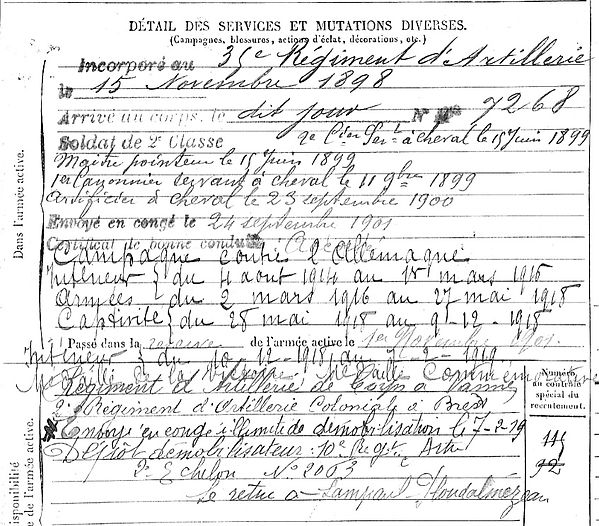 DÉTAIL DES SERVICES ET MUTATIONS DIVERSES.
(Campagnes, blessures, actions d'éclat, décorations, etc.)
Incorporé au 35e Régiment d'Artillerie
le 15 Novembre 1898
Arrivé au corps, le dit jour N° 7268
Soldat de 2e Classe 2e Cer Sert à cheval le 15 Juin 1899
Maître pointeur le 15 Juin 1899
1er Canonnier servant à cheval le 11 9bre 1899
Artificier à cheval le 23 septembre 1900
Envoyé en congé le 24 septembre 1901
Certificat de bonne conduite Accordé
Campagne contre l'Allemagne
Intérieur du 4 aout 1914 au 1er mars 1916
Armées du 2 mars 1916 au 27 mai 1918
Captivité du 28 mai 1918 au 9-12-1918
Passé dans la réserve de l'armée active le 1er Novembre 1901.
Intérieur du 10-12-1918 au 7-2-1919
Médaille de la Victoire Médaille Commémorative
Régiment d'Artillerie de Corps à Vannes
2e Régiment d'Artillerie Coloniale à Brest
Envoyé en congé illimité de démobilisation le 7-2-19
Dépôt démobilisateur: 10e Régt Arti
2e Echelon N° 2063
Se retire à Lampaul-Ploudalmézeau
Numéro au contrôle spécial du recrutement.
Dans l'armée active.
disponibilité
de l'armée active.